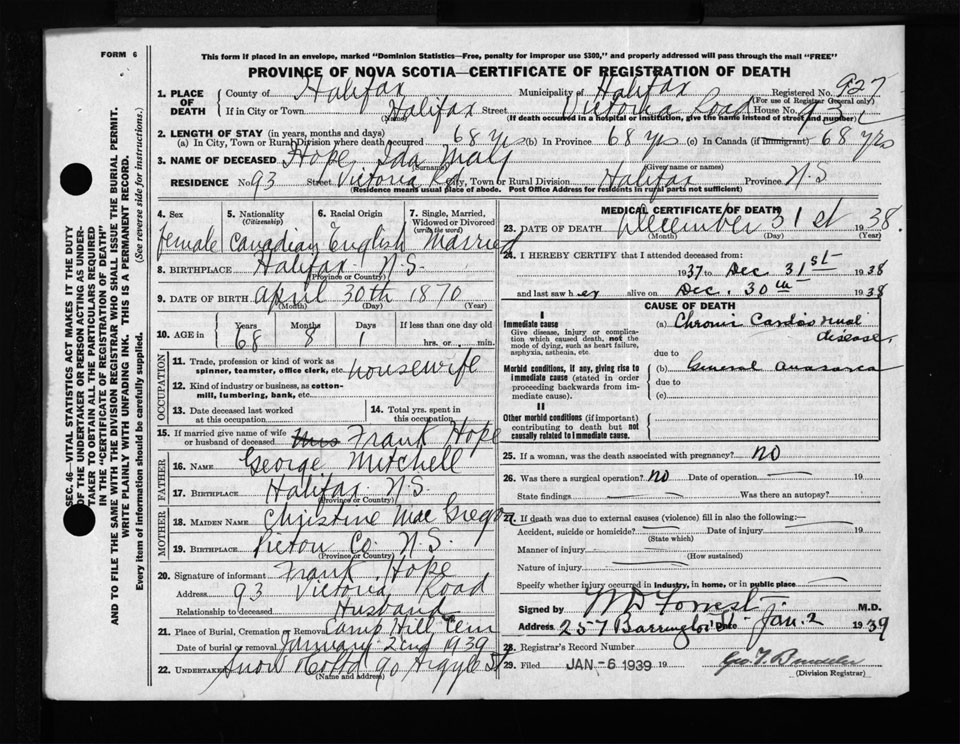 FORM 6
This form if placed in an envelope, marked "Dominion Statistics—Free, penalty for improper use $300," and properly addressed will pass through the mail "FREE"
PROVINCE OF NOVA SCOTIA—CERTIFICATE OF REGISTRATION OF DEATH
1. PLACE OF DEATH County of Halifax Municipality of Halifax Registered No. 927
(For use of Registrar General only)
If in City or Town Halifax Street Victoria Road House No. 93
(Name) (If death occurred in a hospital or institution, give the name instead of street and number)
2. LENGTH OF STAY (in years, months and days)
(a) In City, Town or Rural Division where death occurred 68 yrs (b) In Province 68 yrs (c) In Canada (if immigrant) 68 yrs
3. NAME OF DECEASED Hope Ida May
(Surname) (Given name or names)
RESIDENCE No 93 Street Victoria Rd City, Town or Rural Division Halifax Province N.S
(Residence means usual place of abode. Post Office Address for residents in rural parts not sufficient)
4. Sex female
5. Nationality (Citizenship) Canadian
6. Racial Origin English
7. Single, Married, Widowed or Divorced (write the word) Married
8. BIRTHPLACE Halifax N.S.
(Province or Country)
9. DATE OF BIRTH April 30th 1870
(Month) (Day) (Year)
10. AGE in Years 68 Months 8 Days 1 If less than one day old hrs. or min.
OCCUPATION
11. Trade, profession or kind of work as spinner, teamster, office clerk, etc. housewife
12. Kind of industry or business, as cotton-mill, lumbering, bank, etc.
13. Date deceased last worked at this occupation
14. Total yrs. spent in this occupation
15. If married give name of wife or husband of deceased Frank Hope
FATHER
16. NAME George Mitchell
17. BIRTHPLACE Halifax N.S.
(Province or Country)
MOTHER
18. MAIDEN NAME Christine Mac Gregor
19. BIRTHPLACE Pictou Co N.S.
(Province or Country)
20. Signature of informant Frank Hope
Address 93 Victoria Road
Relationship to deceased Husband
21. Place of Burial, Cremation or Removal Camp Hill Cem
Date of burial or removal January 2nd 1939
22. UNDERTAKER Snow & Co Ltd 90 Argyle St
(Name and address)
MEDICAL CERTIFICATE OF DEATH
23. DATE OF DEATH December 31st 1938.
(Month) (Day) (Year)
24. I HEREBY CERTIFY that I attended deceased from:
1937 to Dec 31st 1938
and last saw her alive on Dec. 30th 1938
CAUSE OF DEATH
I
Immediate cause
Give disease, injury or complication which caused death, not the mode of dying, such as heart failure, asphyxia, asthenia, etc.
(a) Chronic Cardio renal disease,
due to
Morbid conditions, if any, giving rise to immediate cause (stated in order proceeding backwards from immediate cause).
(b) General anasarca
due to
(c)
II
Other morbid conditions (if important) contributing to death but not causally related to immediate cause.
25. If a woman, was the death associated with pregnancy? NO
26. Was there a surgical operation? NO Date of operation 19
State findings Was there an autopsy?
27. If death was due to external causes (violence) fill in also the following:—
Accident, suicide or homicide? Date of injury 19
(State which)
Manner of injury
(How sustained)
Nature of injury
Specify whether injury occurred in industry, in home, or in public place
Signed by W D Forrest M.D.
Address 257 Barrington St Date Jan. 2 1939
28. Registrar's Record Number
29. Filed JAN -6 1939
(Division Registrar)
SEC. 46—VITAL STATISTICS ACT MAKES IT THE DUTY OF THE UNDERTAKER OR PERSON ACTING AS UNDERTAKER TO OBTAIN ALL THE PARTICULARS REQUIRED IN THE "CERTIFICATE OF REGISTRATION OF DEATH"
AND TO FILE THE SAME WITH THE DIVISION REGISTRAR WHO SHALL ISSUE THE BURIAL PERMIT.
WRITE PLAINLY WITH UNFADING INK. THIS IS A PERMANENT RECORD.
Every item of information should be carefully supplied. (See reverse side for instructions.)